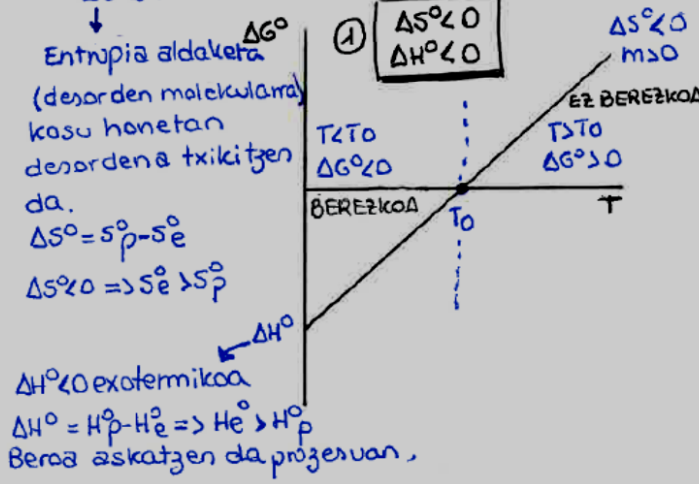 Entropia aldaketa
(desorden molekularra)
kasu honetan
desordena txikitzen
da.
ΔS° = S°p - S°e
ΔS°<0 => S°e > S°p
ΔG°
①
ΔS°<0
ΔH°<0
ΔS°<0
m>0
EZ BEREZKOA
T<T0
ΔG°<0
T>T0
ΔG°>0
BEREZKOA
T0
T
ΔH°
ΔH°<0 exotermikoa
ΔH° = H°p - H°e => He° > H°p
Beroa askatzen da prozesuan.